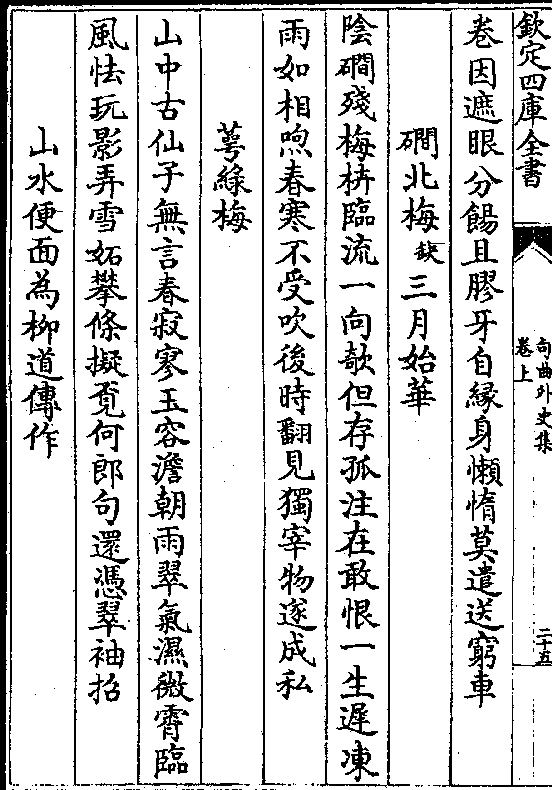 欽定四庫全書
句曲外史集
卷上
二十五
卷因遮眼分餳且膠牙自縁身懶惰莫遣送窮車
磵北梅缺三月始華
陰磵殘梅枿臨流一向欹但存孤注在敢恨一生遲凍
雨如相喣春寒不受吹後時翻見獨宰物遂成私
萼綠梅
山中古仙子無言春寂寥玉容澹朝雨翠氣濕微霄臨
風怯玩影弄雪妬攀條擬覔何郎句還憑翠袖招
山水便面為柳道傳作